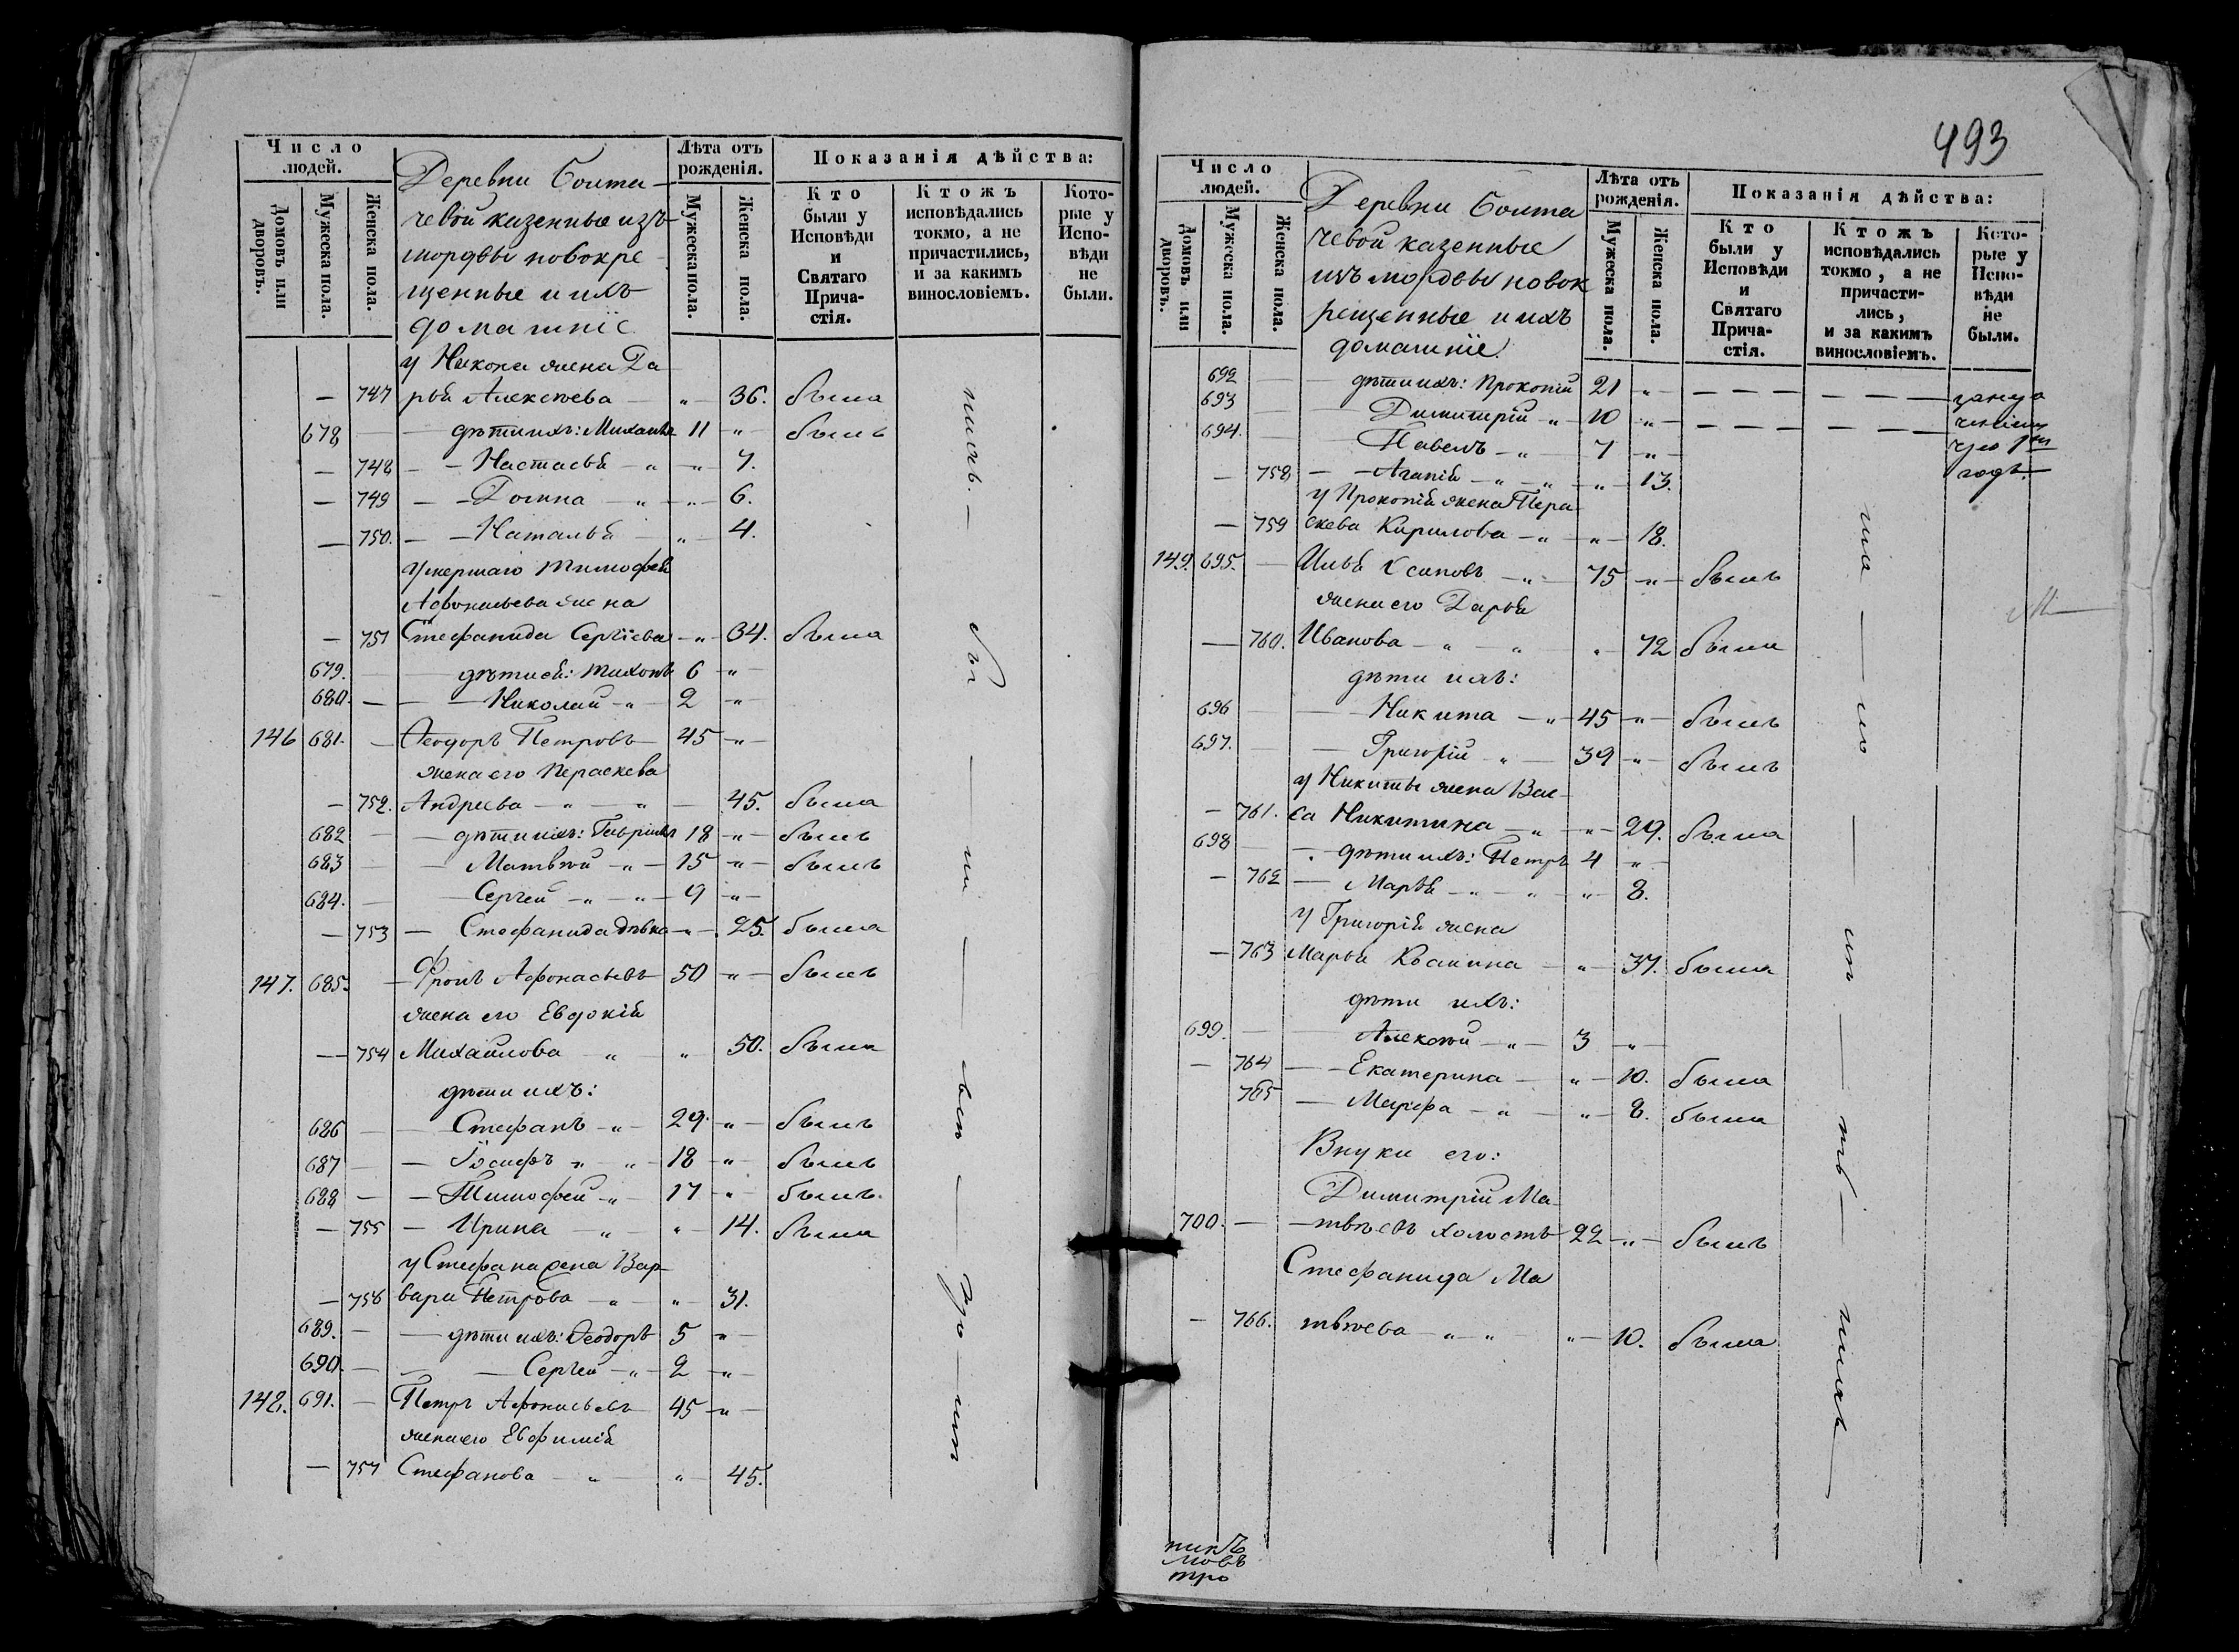 Число людей.
Домовъ или дворовъ.
Мужеска пола.
Женска пола.
Деревни Болта-
чевой казенные изъ
мордвы новокре
щенные и ихъ
домашніе
Лѣта отъ рожденія.
Мужеска пола.
Женска пола.
Показанія дѣйства:
Кто были у Исповѣди и Святаго Прича-стія.
Ктожъ исповѣдались токмо, а не причастились, и за какимъ винословіемъ.
Кото-рые у Испо-вѣди не были.
у Никона жена Да
— 747 рья Алексѣева — „ — 36. была
678 — — дѣти ихъ: Михаилъ 11 „ — былъ
— 748 — — Настасья — „ — „ — 7.
— 749 — — Домна — „ — „ — 6.
— 750. — — Наталья — „ — 4.
Умершаго Тимофея
Афонасьева жена
— 751 Стефанида Сергіева — „ — 34. была
679. — — дѣти ея: Тихонъ 6 „ —
680. — — — Николай — „ — 2 „ —
146 681. — Ѳеодоръ Петровъ — 45 „ —
жена его Параскева
— 752. Андреева — „ — „ — 45. была
682 — — дѣти ихъ: Гаврілъ 18 „ — былъ
683 — — Матвѣй — „ — 15 „ — былъ
684. — — Сергей — „ — „ — 9 „ —
— 753 — Стефанида дѣвка — „ — 25. была
147. 685. — Фролъ Афонасьевъ — 50 „ — былъ
жена его Евдокія
— 754 Михайлова — „ — „ 50. была
дѣти ихъ:
686 — — Стефанъ — „ — 29. „ — былъ
687 — — Іосифъ „ — „ — 18 — „ — былъ
688 — — Тимофей — „ — 17 — „ былъ.
— 755 — Ирина — „ — „ — 14. была
у Стефана жена Вар-
— 756 вара Петрова — „ — „ — 31.
689. — — дѣти ихъ: Ѳеодоръ 5 „ —
690. — — — Сергей — „ — 2 — „ —
148. 691. — Петръ Афонасьевъ 45 — „ —
жена его Евфимія
— 757 Стефанова — „ — „ — 45.
493
Число людей.
Домовъ или дворовъ.
Мужеска пола.
Женска пола.
Деревни Болта
чевой казенные
изъ мордвы новок
рещенные и ихъ
домашніе.
Лѣта отъ рожденія.
Мужеска пола.
Женска пола.
Показанія дѣйства:
Кто были у Исповѣди и Святаго Прича-стія.
Ктожъ исповѣдались токмо, а не причасти-лись, и за какимъ винословіемъ.
Кото-рые у Испо-вѣди не были.
692 — — дѣти ихъ: Прокопій 21 „ — — — — — — —
693 — Димитрій — „ — 10 „ — — — — — — —
694. Павелъ — „ 7 — „ —
годъ.
— 758 — — Агапія — „ — „ — „ — 13.
у Прокопія жена Пара
— 759 скева Кирилова — „ — „ — 18.
149. 695. — Илья Осиповъ — „ — 75 — „ — былъ
жена его Дарья
— 760. Иванова — „ — „ „ — 72 была
дѣти ихъ:
696 — — Никита — „ — 45 — „ — былъ
697. — — Григорій — „ — 39 „ — былъ
у Никиты жена Вас-
— 761. са Никитина — „ — „ — 29. была
698 — дѣти ихъ: Петръ 4 „ —
— 762 — Марья — „ — „ — „ — 8.
у Григорія жена
— 763 Марья Козмина — „ — 37. была
дѣти ихъ:
699. — — Алексѣй — „ — 3 — „ —
— 764 — — Екатерина — „ — 10. была
765 — Марфа — „ — „ — 8. была
Внуки его:
Димитрій Ма-
700. — — твѣевъ холостъ 22 — „ — былъ
Стефанида Ма
— 766. твѣева — „ — „ — „ — 10. была